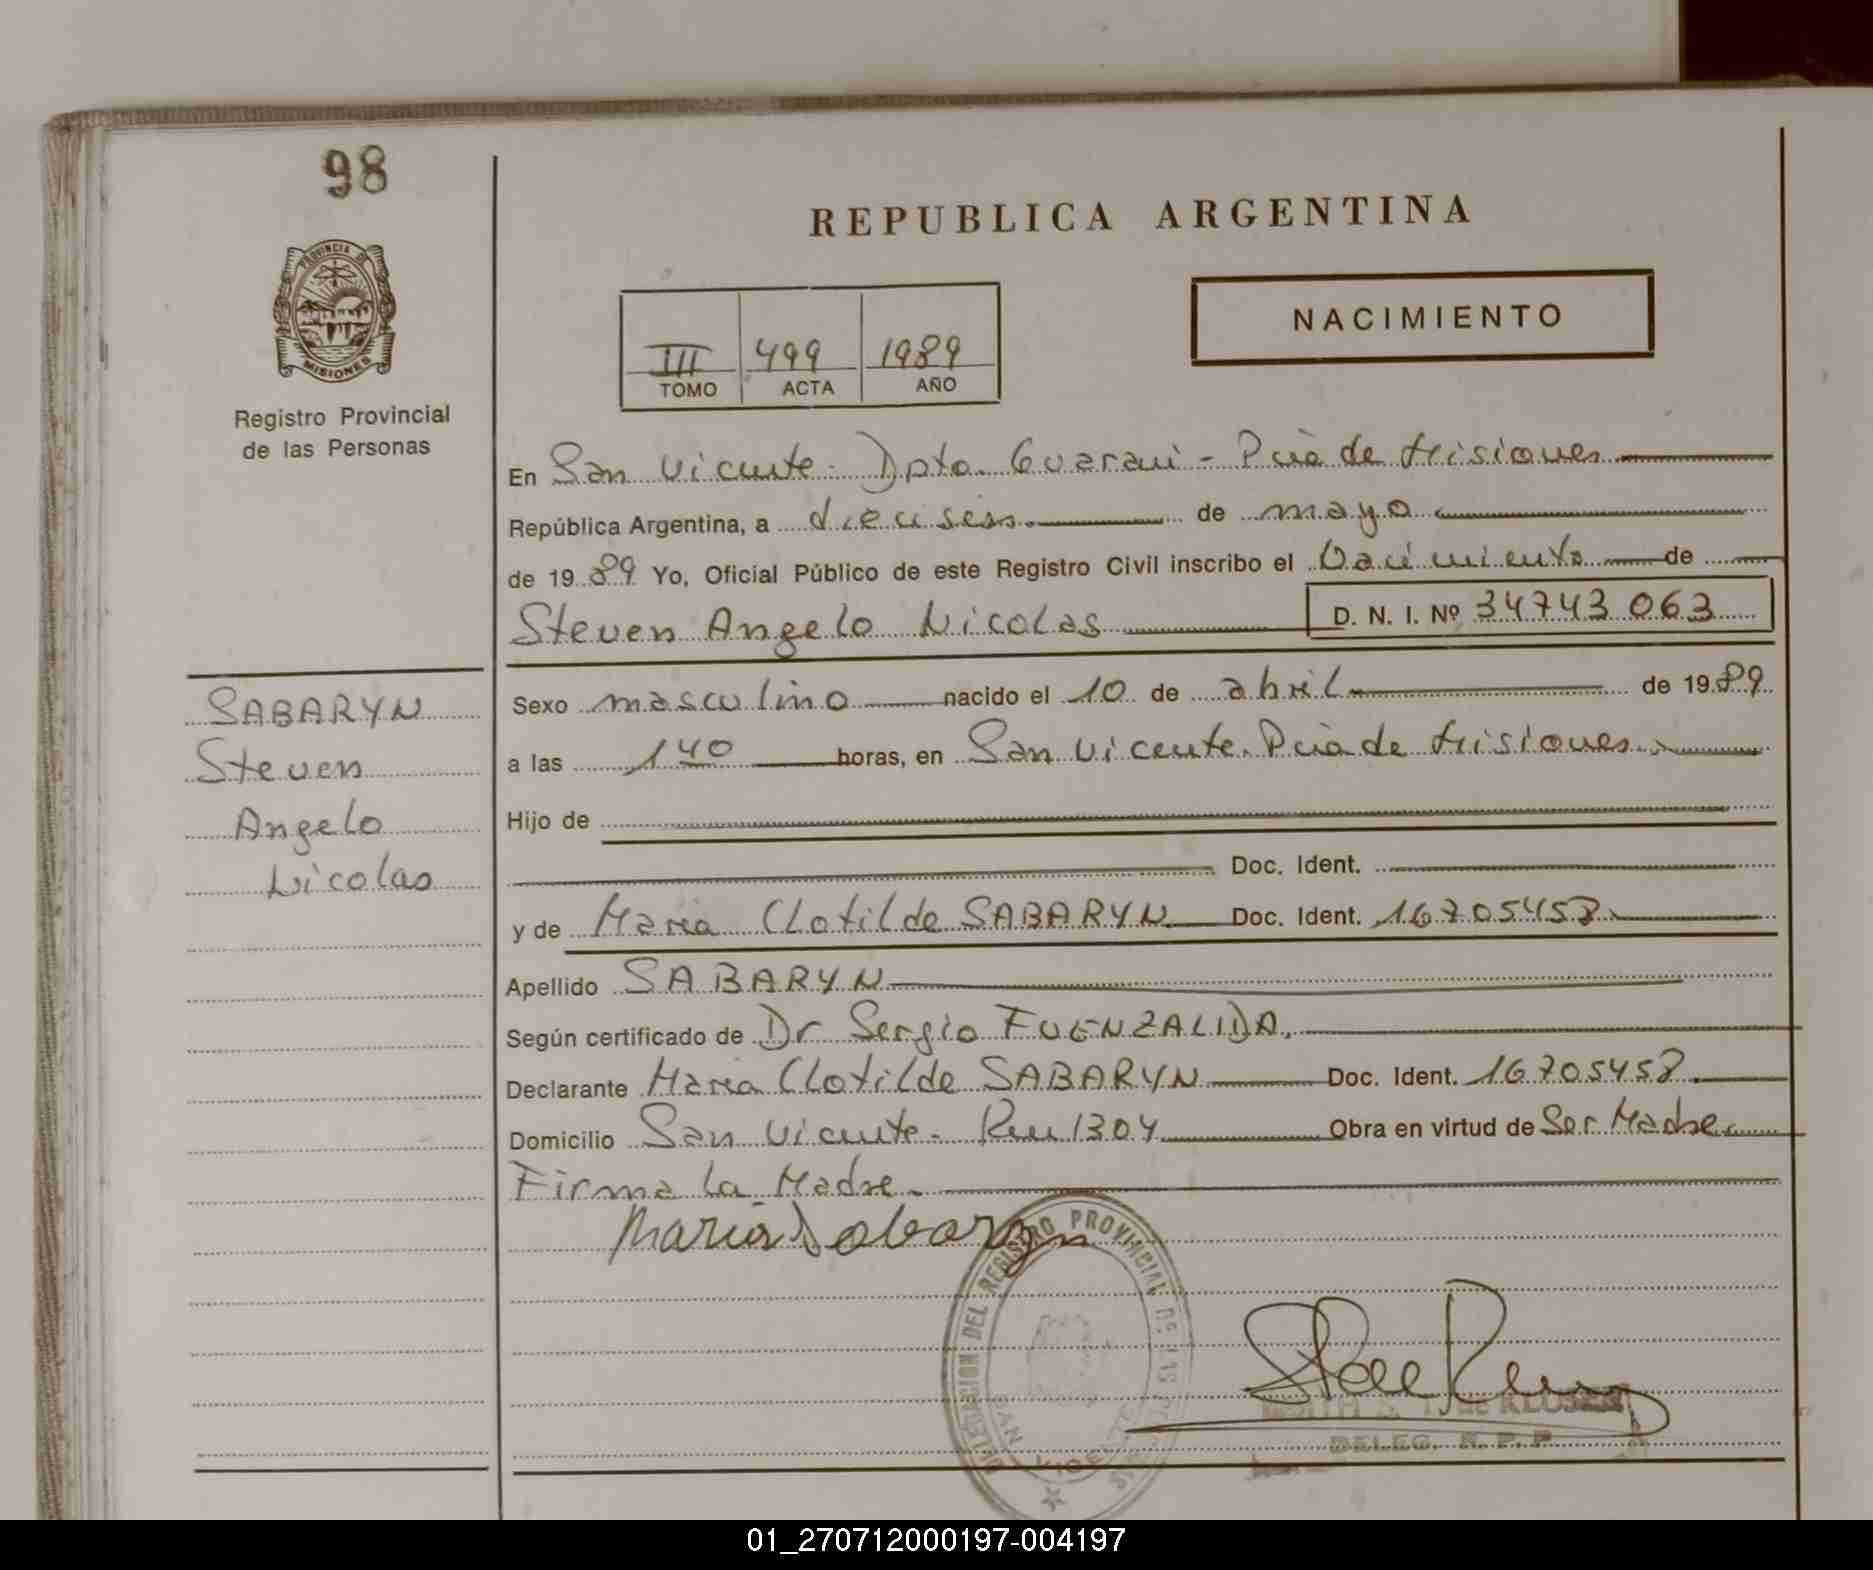 98
PROVINCIA DE
MISIONES
Registro Provincial
de las Personas
REPUBLICA ARGENTINA
NACIMIENTO
III 499 1989
TOMO ACTA AÑO
En San Vicente. Dpto. Guarani - Pcia de Misiones
República Argentina, a dieciseis. de mayo
de 1989 Yo, Oficial Público de este Registro Civil inscribo el Nacimiento de
Steven Angelo Nicolas D. N. I. Nº 34743063
SABARYN
Steven
Angelo
Nicolas
Sexo masculino nacido el 10 de abril de 1989
a las 1 40 horas, en San Vicente. Pcia de Misiones.
Hijo de
Doc. Ident.
y de Maria Clotilde SABARYN Doc. Ident. 16705458
Apellido SABARYN
Según certificado de Dr Sergio FUENZALIDA.
Declarante Maria Clotilde SABARYN Doc. Ident. 16705458.
Domicilio San Vicente. Km 1304 Obra en virtud de Ser Madre.
Firma la Madre.
Maria Sabaryn
DELEGACION DEL REGISTRO PROVINCIAL DE LAS PERSONAS
SAN VICENTE
DELEG. R. P. P.
01_270712000197-004197